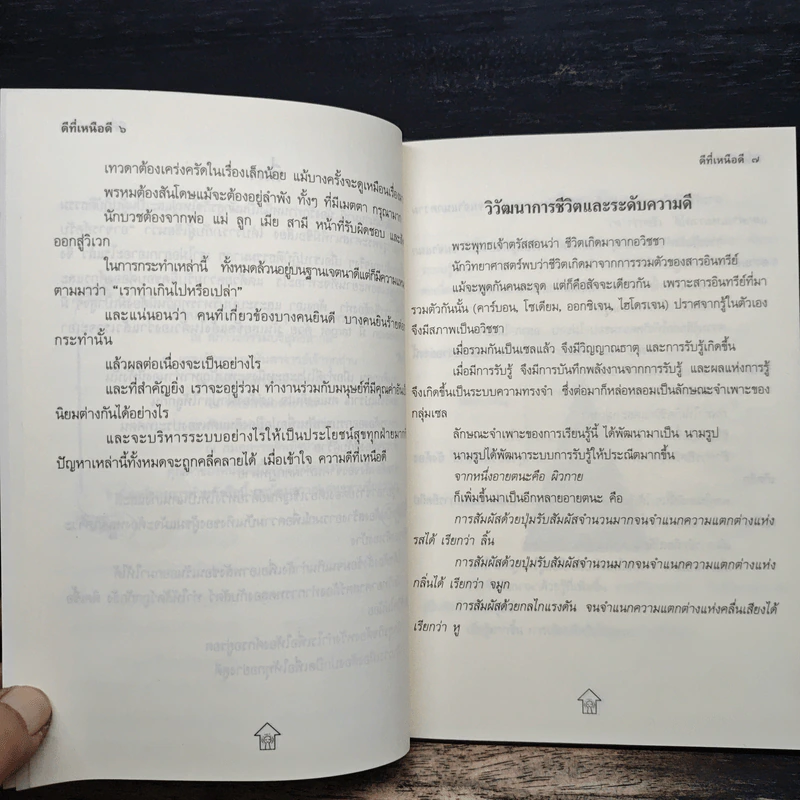 ดีที่เหนือดี ๖
เทวดาต้องเคร่งครัดในเรื่องเล็กน้อย แม้บางครั้งจะดูเหมือน
พรหมต้องสันโดษแม้จะต้องอยู่ลำพัง ทั้งๆ ที่มีเมตตา กรุณา
นักบวชต้องจากพ่อ แม่ ลูก เมีย สามี หน้าที่รับผิดชอบ และ
ออกสู่วิเวก
ในการกระทำเหล่านี้ ทั้งหมดล้วนอยู่บนฐานเจตนาดีแต่ก็มีความ
ตามมาว่า “เราทำเกินไปหรือเปล่า”
และแน่นอนว่า คนที่เกี่ยวข้องบางคนยินดี บางคนยินร้าย
กระทำนั้น
แล้วผลต่อเนื่องจะเป็นอย่างไร
และที่สำคัญยิ่ง เราจะอยู่ร่วม ทำงานร่วมกับมนุษย์ที่มีคุณค่า
นิยมต่างกันได้อย่างไร
และจะบริหารระบบอย่างไรให้เป็นประโยชน์สุขทุกฝ่าย
ปัญหาเหล่านี้ทั้งหมดจะถูกคลี่คลายได้ เมื่อเข้าใจ ความดีที่เหนือดี
ดีที่เหนือดี ๗
วิวัฒนาการชีวิตและระดับความดี
พระพุทธเจ้าตรัสสอนว่า ชีวิตเกิดมาจากอวิชชา
นักวิทยาศาสตร์พบว่าชีวิตเกิดมาจากการรวมตัวของสารอินทรีย์
แม้จะพูดกันคนละจุด แต่ก็คือสัจจะเดียวกัน เพราะสารอินทรีย์ที่มา
รวมตัวกันนั้น (คาร์บอน, โซเดียม, ออกซิเจน, ไฮโดรเจน) ปราศจากรู้ในตัวเอง
จึงมีสภาพเป็นอวิชชา
เมื่อรวมกันเป็นเซลแล้ว จึงมีวิญญาณธาตุ และการรับรู้เกิดขึ้น
เมื่อมีการรับรู้ จึงมีการบันทึกพลังงานจากการรับรู้ และผลแห่งการรู้
จึงเกิดขึ้นเป็นระบบความทรงจำ ซึ่งต่อมาก็หล่อหลอมเป็นลักษณะจำเพาะของ
กลุ่มเซล
ลักษณะจำเพาะของการเรียนรู้นี้ ได้พัฒนามาเป็น นามรูป
นามรูปได้พัฒนาระบบการรับรู้ให้ประณีตมากขึ้น
จากหนึ่งอายตนะคือ ผิวกาย
ก็เพิ่มขึ้นมาเป็นอีกหลายอายตนะ คือ
การสัมผัสด้วยปุ่มรับสัมผัสจำนวนมากจนจำแนกความแตกต่างแห่ง
รสได้ เรียกว่า ลิ้น
การสัมผัสด้วยปุ่มรับสัมผัสจำนวนมากจนจำแนกความแตกต่างแห่ง
กลิ่นได้ เรียกว่า จมูก
การสัมผัสด้วยกลไกแรงดัน จนจำแนกความแตกต่างแห่งคลื่นเสียงได้
เรียกว่า หู